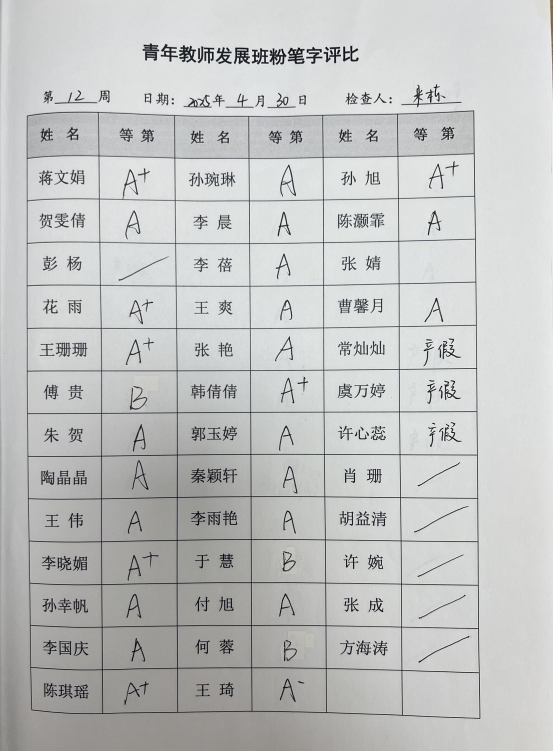 青年教师发展班粉笔字评比
第 12 周 日期: 2025年 4 月 30 日 检查人: 来栋
姓 名 等 第 姓 名 等 第 姓 名 等 第
蒋文娟 A+ 孙琬琳 A 孙 旭 A+
贺雯倩 A 李 晨 A 陈灏霏 A
彭 杨 / 李 蓓 A 张 婧
花 雨 A+ 王 爽 A 曹馨月 A
王珊珊 A+ 张 艳 A 常灿灿 产假
傅 贵 B 韩倩倩 A+ 虞万婷 产假
朱 贺 A 郭玉婷 A 许心蕊 产假
陶晶晶 A 秦颖轩 A 肖 珊 /
王 伟 A 李雨艳 A 胡益清 /
李晓媚 A+ 于 慧 B 许 婉 /
孙幸帆 A 付 旭 A 张 成 /
李国庆 A 何 蓉 B 方海涛 /
陈琪瑶 A+ 王 琦 A-